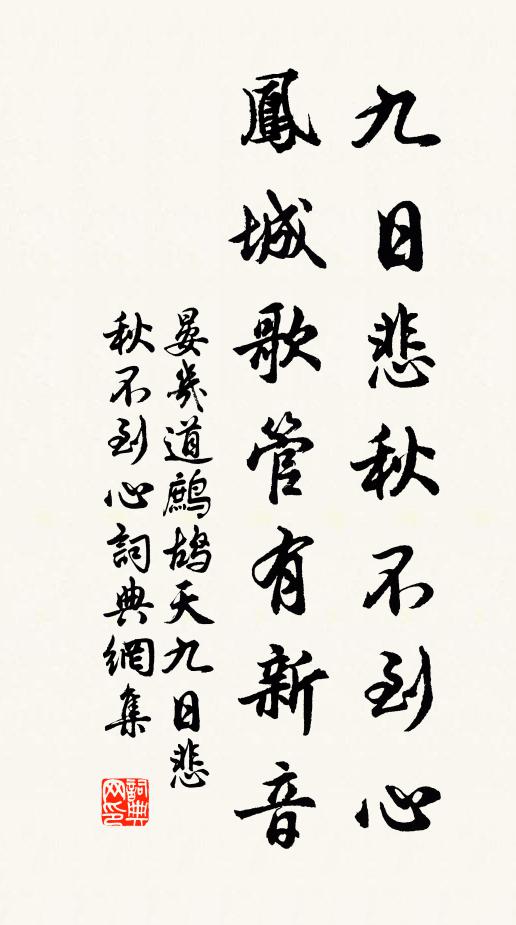 九日悲秋不到心
鳳城歌管有新音
晏幾道鷓鴣天九日悲
秋不到心詞典網集
詞典
网印